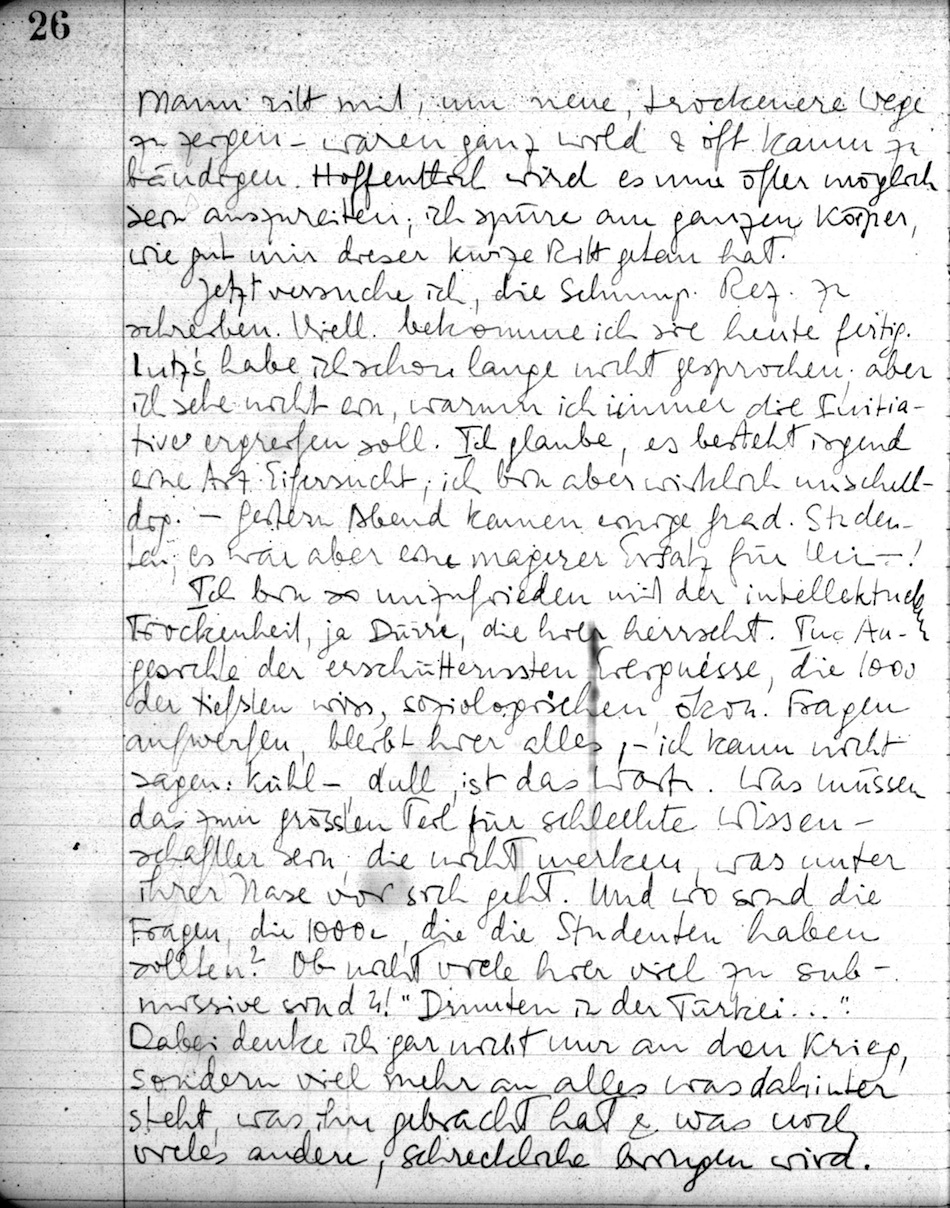 26
Mann ritt mit, um neue, trockenere Wege
zu zeigen – waren ganz wild & oft kaum zu
bändigen. Hoffentlich wird es nun öfter möglich
sein auszureiten; ich spüre am ganzen Körper,
wie gut mir dieser kurze Ritt getan hat.
Jetzt versuche ich, die Schump. Rez. zu
schreiben. Viell. bekomme ich sie heute fertig.
Lutz's habe ich schon lange nicht gesprochen; aber
ich sehe nicht ein, warum ich immer die Initia-
tive ergreifen soll. Ich glaube, es besteht irgend
eine Art Eifersucht; ich bin aber wirklich unschul-
dig. – Gestern Abend kamen einige grad. Studen-
ten; es war aber eine magerer Ersatz für
Ich bin so unzufrieden mit der intellektuellen
Trockenheit, ja Dürre, die hier herrscht. Im An-
gesichte der erschütterndsten Ereignisse, die 1000
der tiefsten wiss., soziologischen ökon. Fragen
aufwerfen, bleibt hier alles, – ich kann nicht
sagen: kühl – dull, ist das Wort. Was müssen
das zum grössten Teil für schlechte Wissen-
schaftler sein, die nicht merken, was unter
ihrer Nase vor sich geht. Und wo sind die
Fragen, die 1000e, die die Studenten haben
sollten? Ob nicht viele hier viel zu sub-
missive sind "Drunten in der Türkei..."
Dabei denke ich gar nicht nur an den Krieg,
sondern viel mehr an alles was dahinter
steht, was ihn gebracht hat & was noch
vieles andere, schreckliche bringen wird.